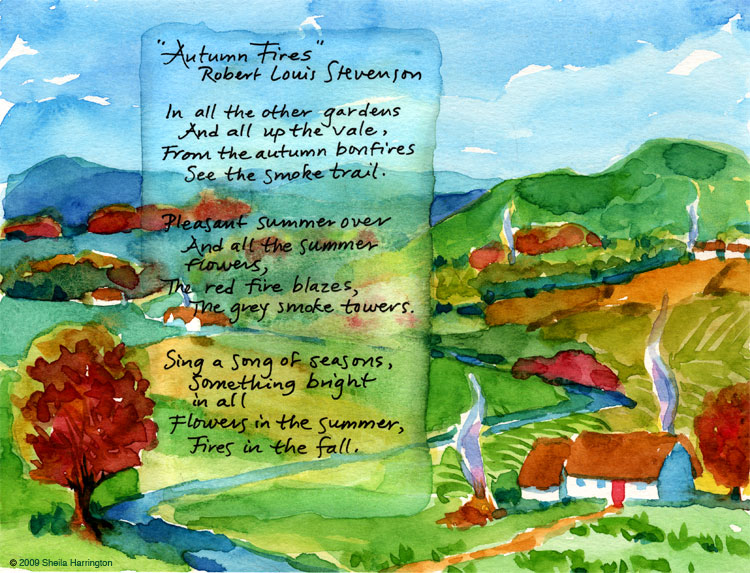 "Autumn Fires"
Robert Louis Stevenson
In all the other gardens
And all up the vale,
From the autumn bonfires
See the smoke trail.
Pleasant summer over
And all the summer
flowers,
The red fire blazes,
The grey smoke towers.
Sing a song of seasons,
Something bright
in all
Flowers in the summer,
Fires in the fall.
© 2009 Sheila Harrington